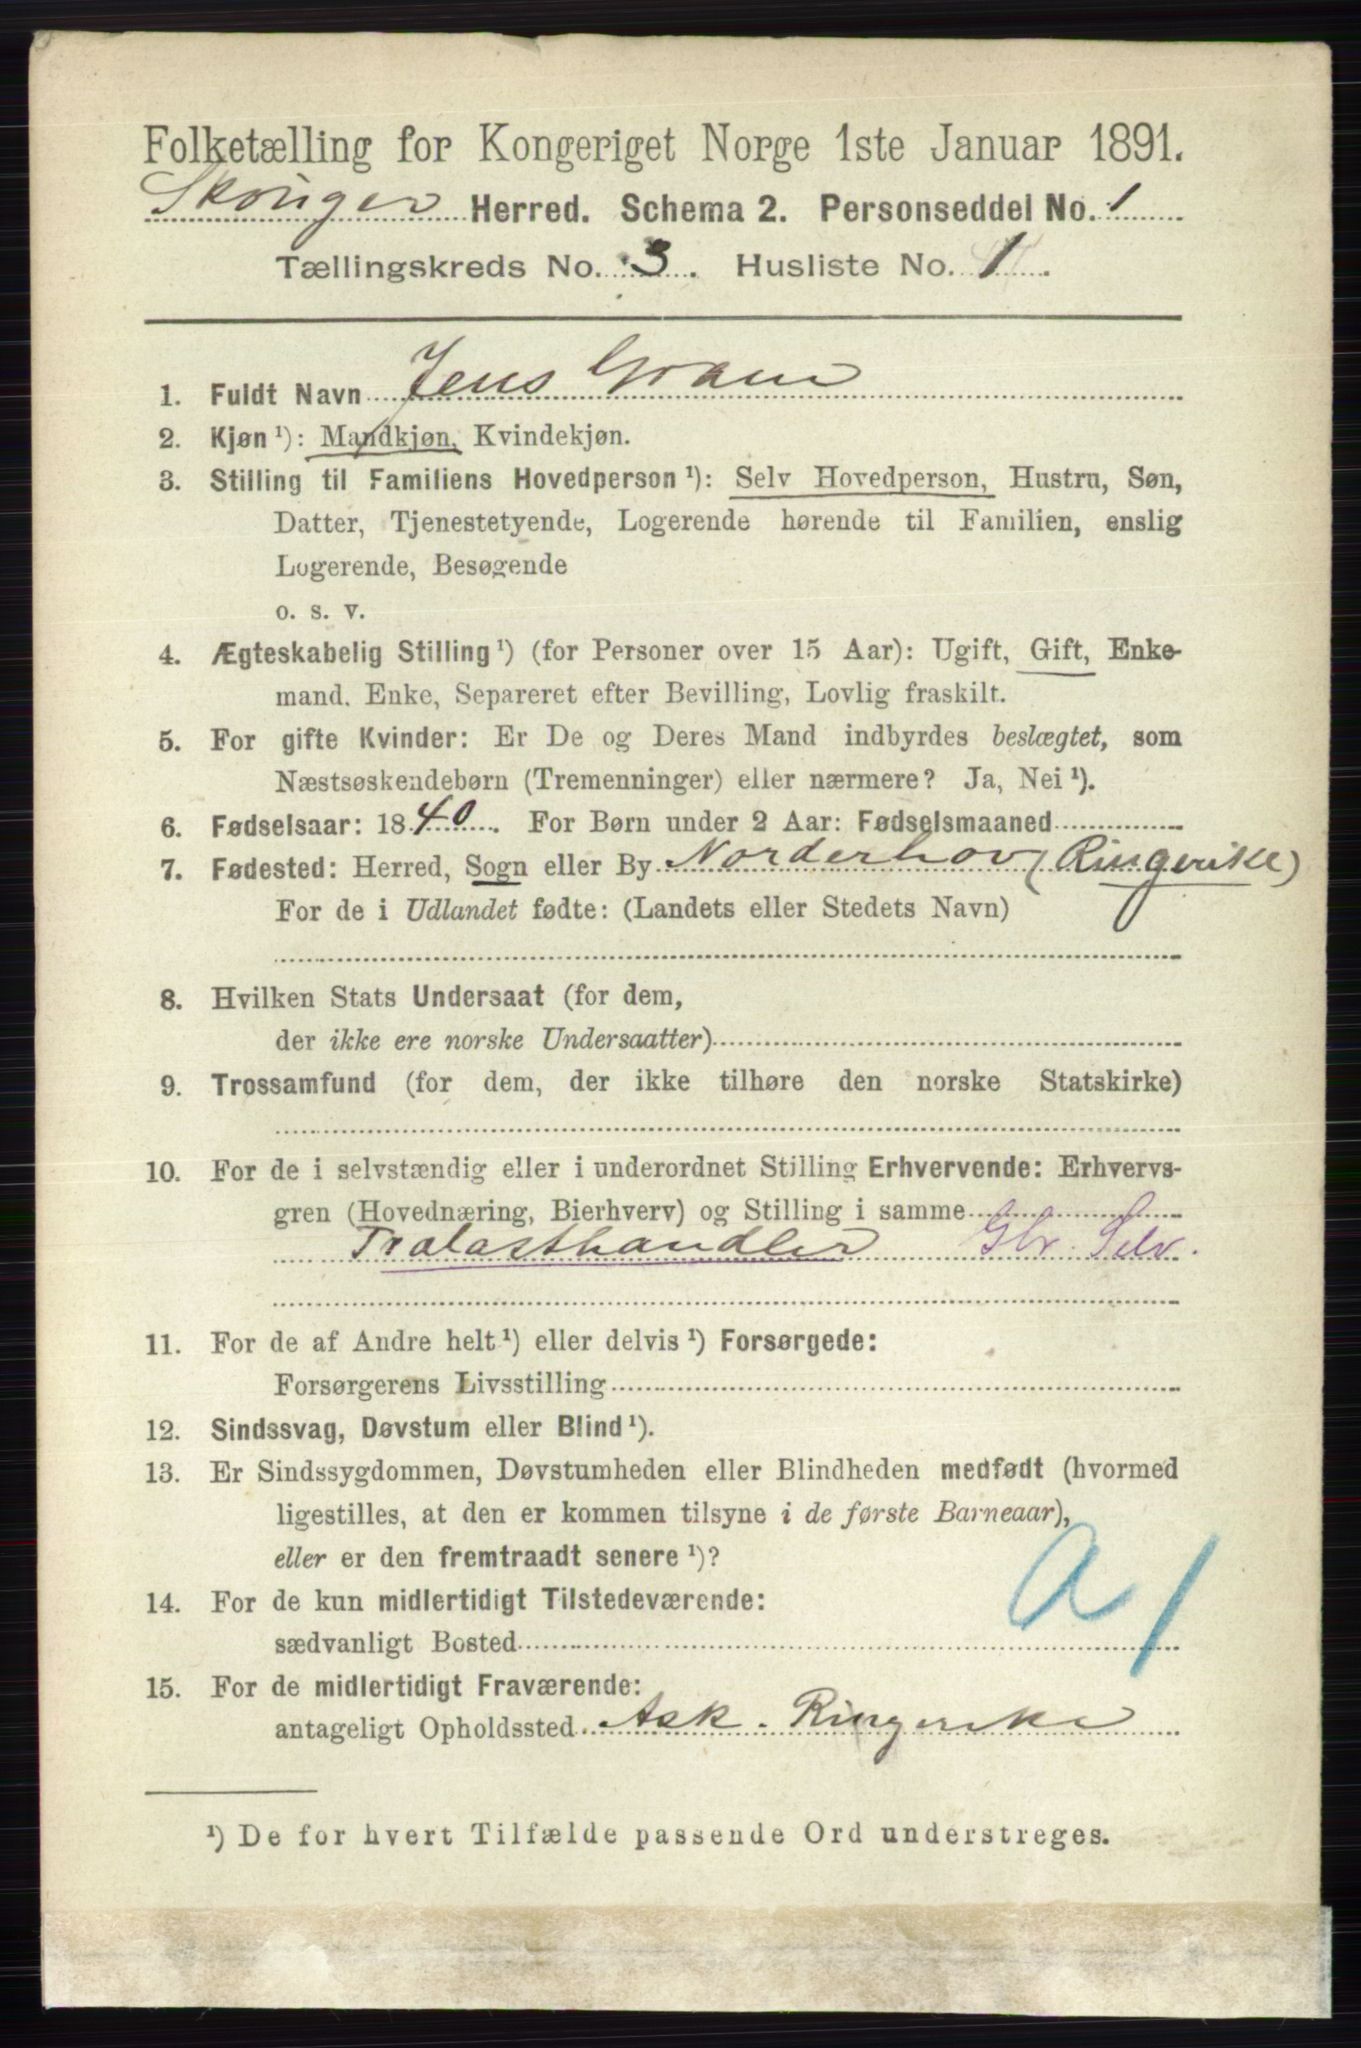 Folketælling for Kongeriget Norge 1ste Januar 1891.
Skouger Herred. Schema 2. Personseddel No. 1
Tællingskreds No. 3. Husliste No. 1.
1. Fuldt Navn Jens Gram
2. Kjøn ¹): Mandkjøn, Kvindekjøn.
3. Stilling til Familiens Hovedperson ¹): Selv Hovedperson, Hustru, Søn,
Datter, Tjenestetyende, Logerende hørende til Familien, enslig
Logerende, Besøgende
o. s. v.
4. Ægteskabelig Stilling ¹) (for Personer over 15 Aar): Ugift, Gift, Enke-
mand, Enke, Separeret efter Bevilling, Lovlig fraskilt.
5. For gifte Kvinder: Er De og Deres Mand indbyrdes beslægtet, som
Næstsøskendebørn (Tremenninger) eller nærmere? Ja, Nei ¹).
6. Fødselsaar: 1840. For Børn under 2 Aar: Fødselsmaaned
7. Fødested: Herred, Sogn eller By Norderhov (Ringerike)
For de i Udlandet fødte: (Landets eller Stedets Navn)
8. Hvilken Stats Undersaat (for dem,
der ikke ere norske Undersaatter)
9. Trossamfund (for dem, der ikke tilhøre den norske Statskirke)
10. For de i selvstændig eller i underordnet Stilling Erhvervende: Erhvervs-
gren (Hovednæring, Bierhverv) og Stilling i samme
Trælasthandler Gbr. Selv.
11. For de af Andre helt ¹) eller delvis ¹) Forsørgede:
Forsørgerens Livsstilling
12. Sindssvag, Døvstum eller Blind ¹).
13. Er Sindssygdommen, Døvstumheden eller Blindheden medfødt (hvormed
ligestilles, at den er kommen tilsyne i de første Barneaar),
eller er den fremtraadt senere ¹)?
a 1
14. For de kun midlertidigt Tilstedeværende:
sædvanligt Bosted
15. For de midlertidigt Fraværende:
antageligt Opholdssted Ask. Ringerike
¹) De for hvert Tilfælde passende Ord understreges.